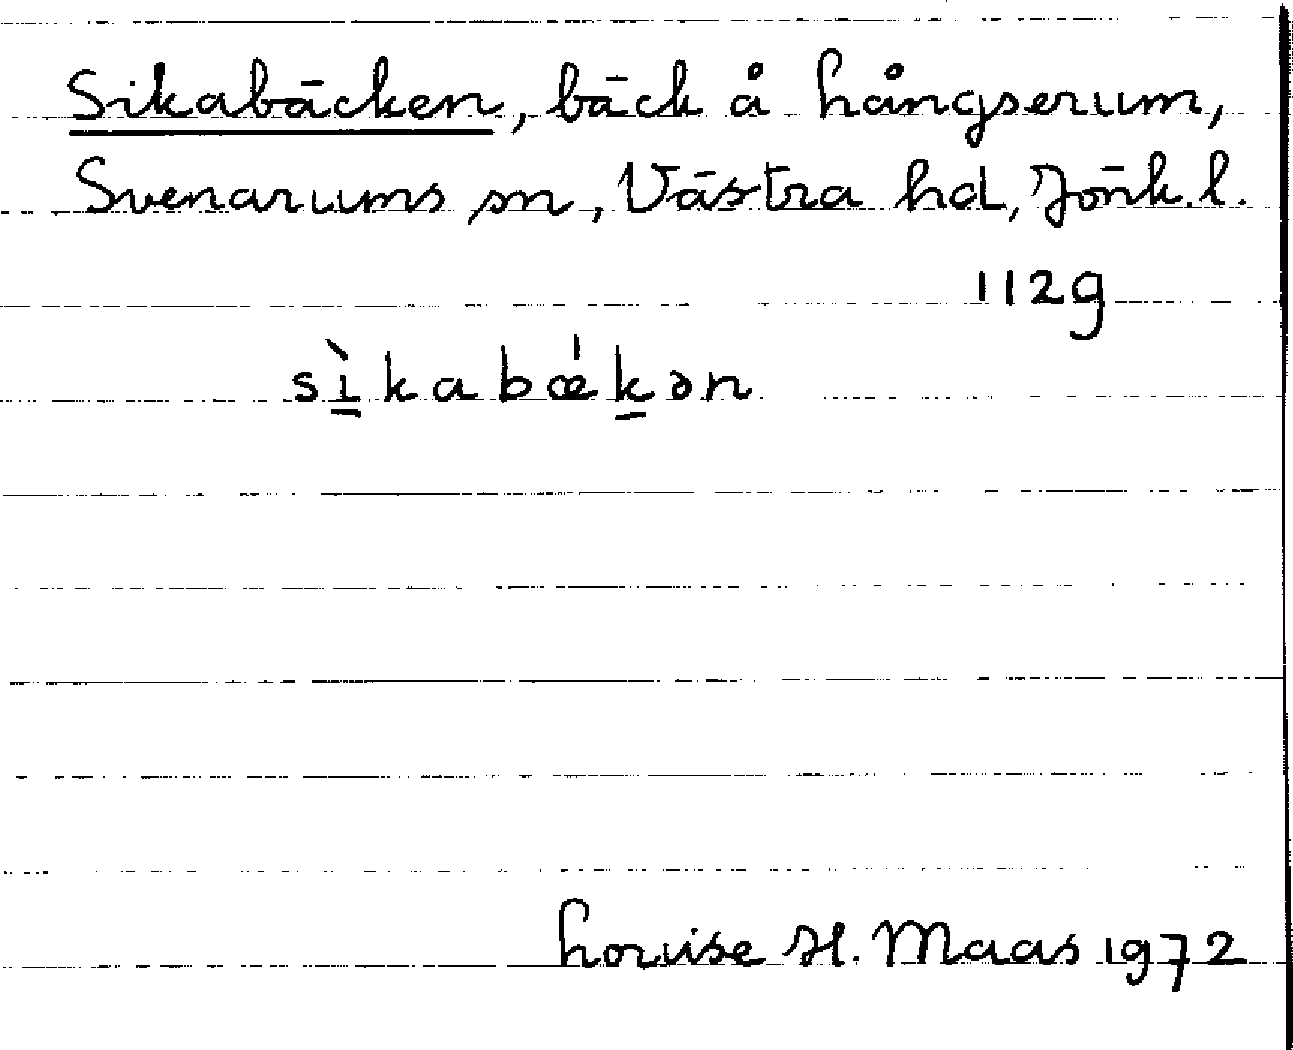 Sikabäcken, bäck å Långserum,
Svenarums sn, Västra hd, Jönk. l.
1129
sı̱̀kabǽḵən
Louise H. Maas 1972